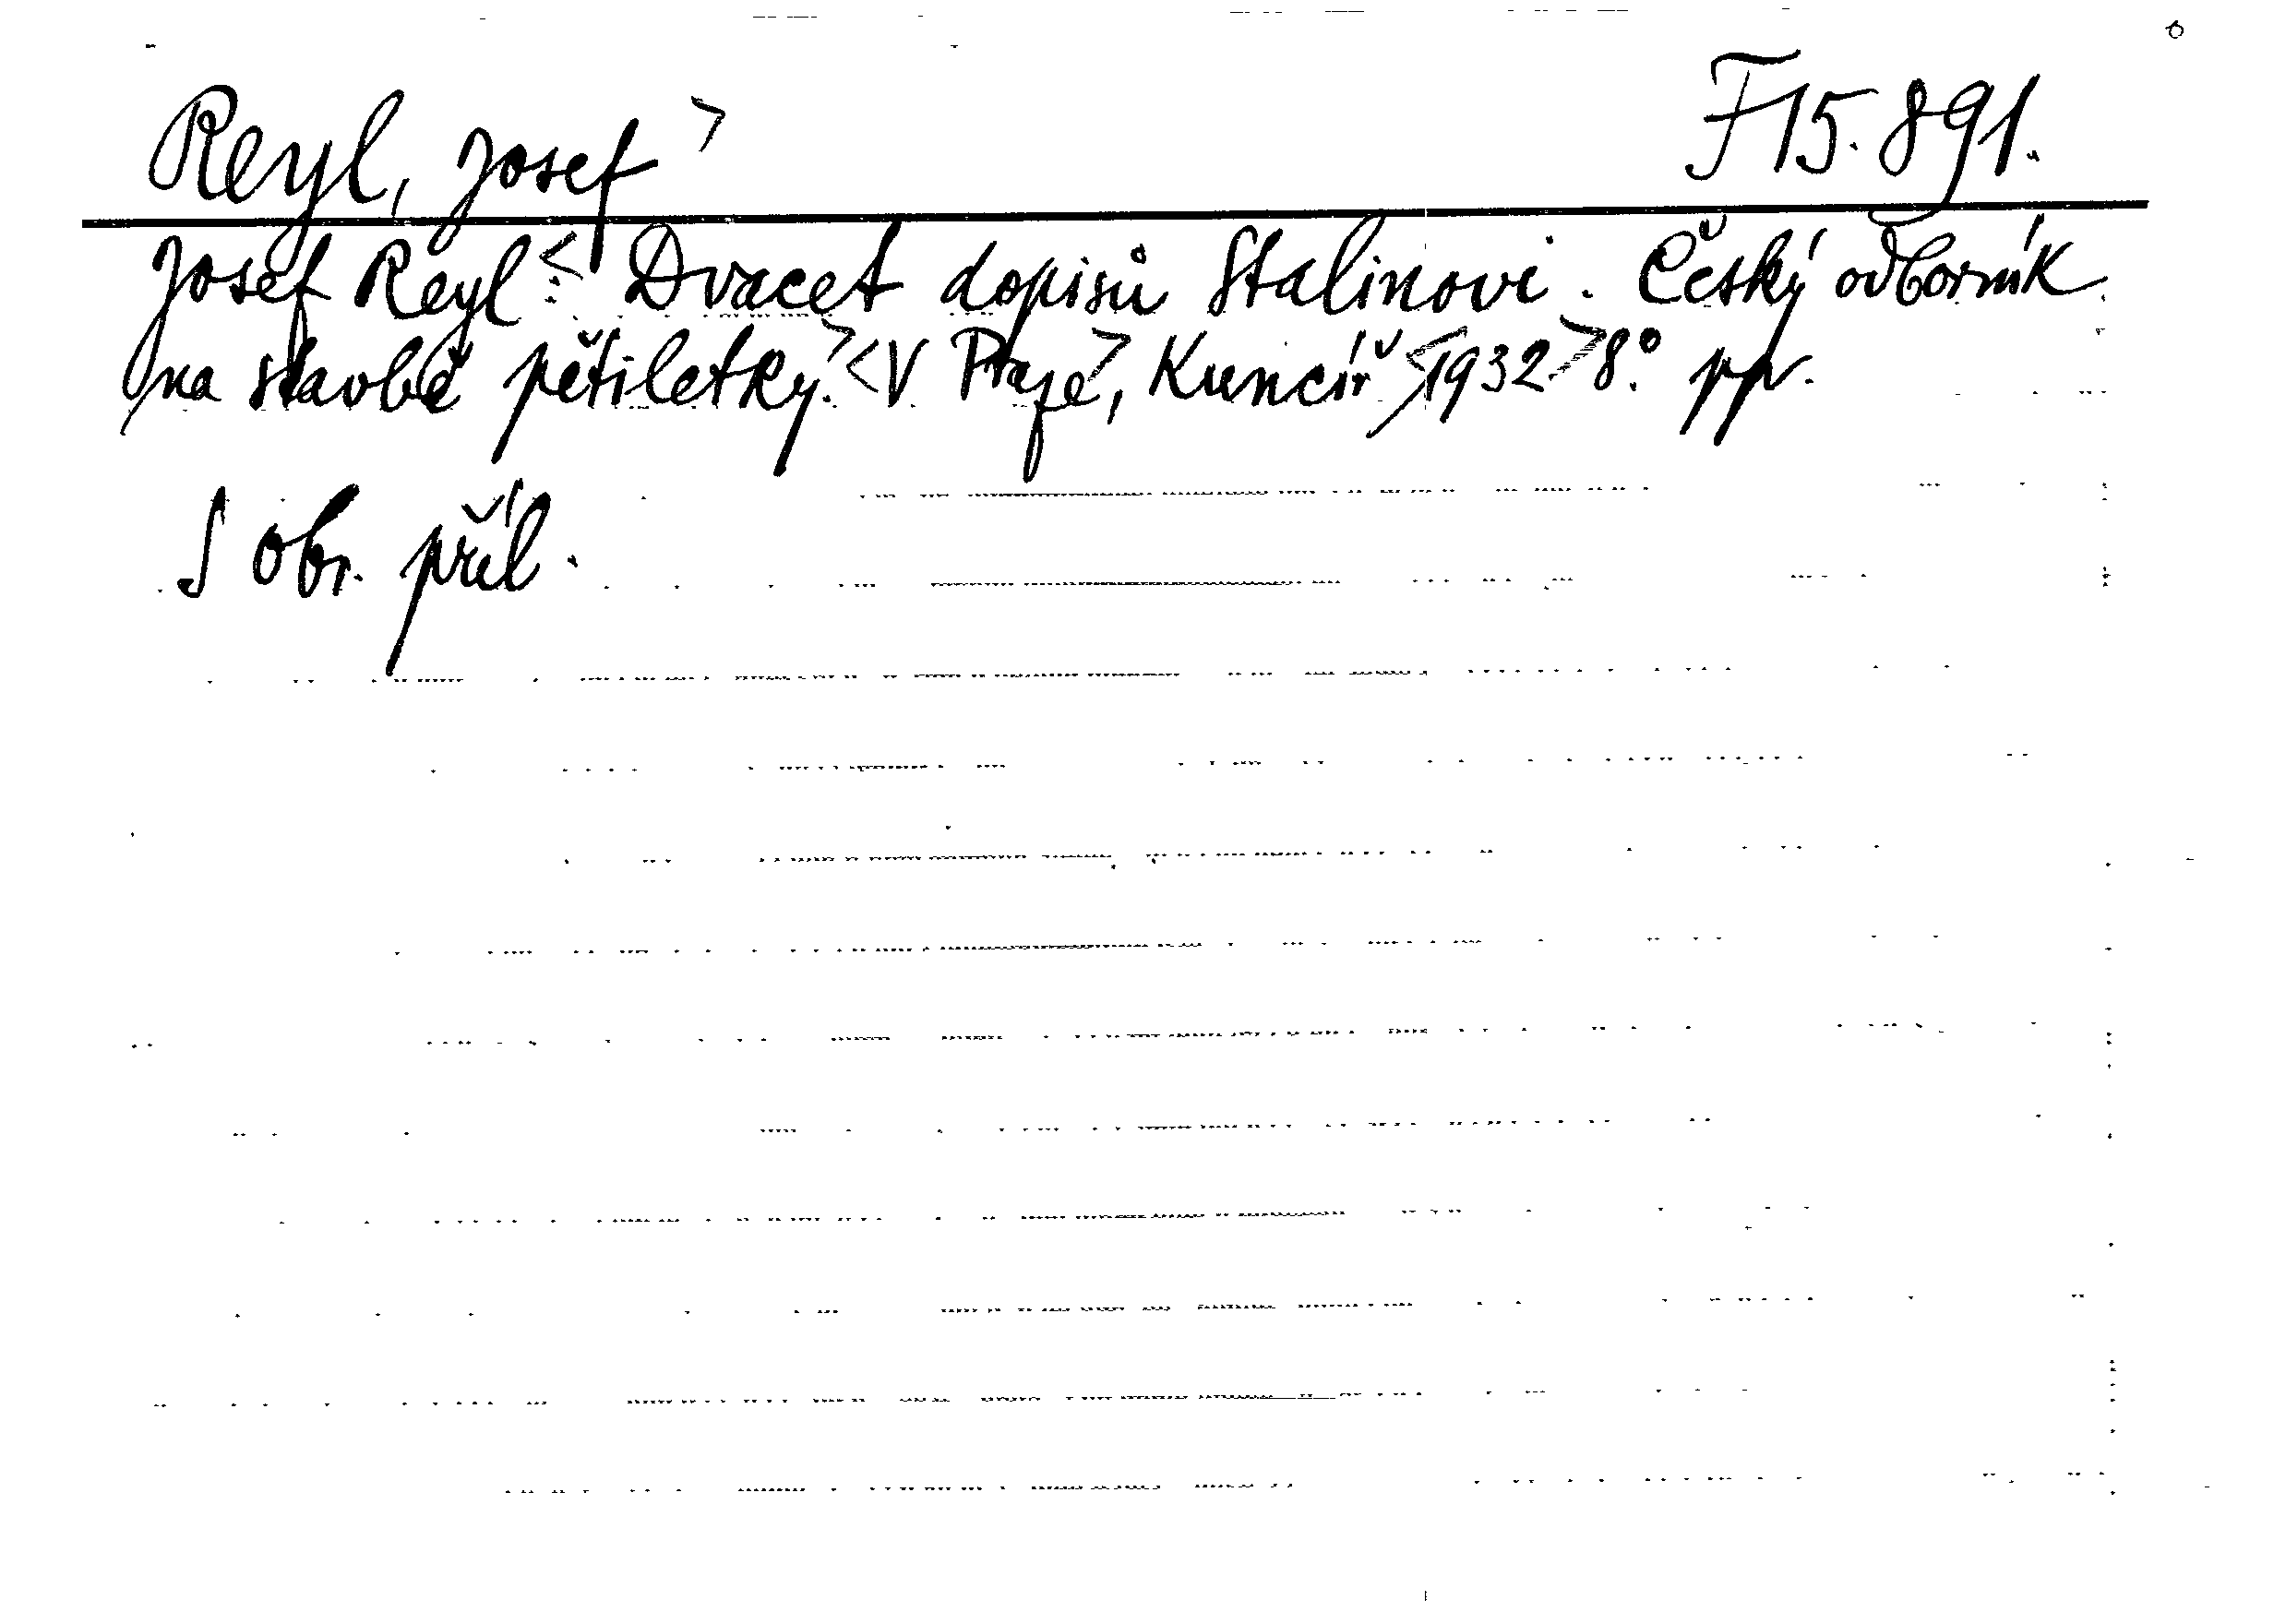 Reyl, Josef> F 15.891.
Josef Reyl<: Dvacet dopisů Stalinovi. Český odborník
na stavbě pětiletky.> <V Praze>, Kuncíř <1932> 8.° pp.
S obr. příl.